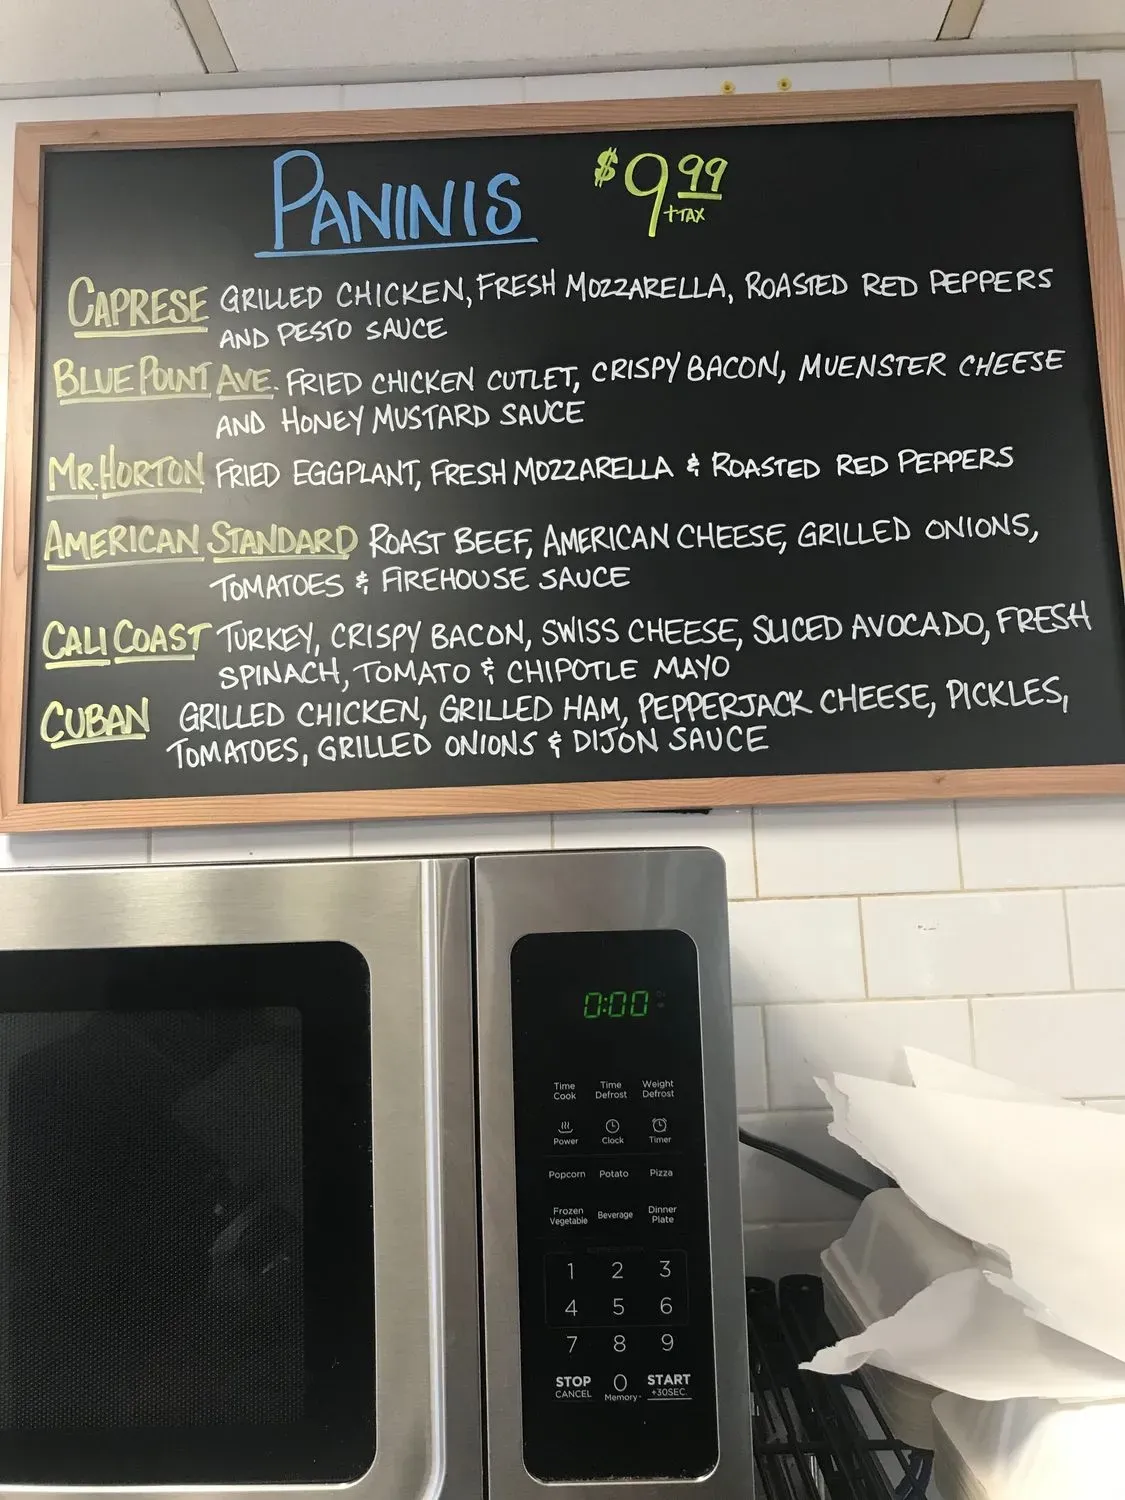 PANINIS $9.99
+TAX
CAPRESE GRILLED CHICKEN, FRESH MOZZARELLA, ROASTED RED PEPPERS
AND PESTO SAUCE
BLUE POINT AVE. FRIED CHICKEN CUTLET, CRISPY BACON, MUENSTER CHEESE
AND HONEY MUSTARD SAUCE
MR. HORTON FRIED EGGPLANT, FRESH MOZZARELLA & ROASTED RED PEPPERS
AMERICAN STANDARD ROAST BEEF, AMERICAN CHEESE, GRILLED ONIONS,
TOMATOES & FIREHOUSE SAUCE
CALI COAST TURKEY, CRISPY BACON, SWISS CHEESE, SLICED AVOCADO, FRESH
SPINACH, TOMATO & CHIPOTLE MAYO
CUBAN GRILLED CHICKEN, GRILLED HAM, PEPPERJACK CHEESE, PICKLES,
TOMATOES, GRILLED ONIONS & DIJON SAUCE
0:00
Time Cook Time Defrost Weight Defrost
Power Clock Timer
Popcorn Potato Pizza
Frozen Vegetable Beverage Dinner Plate
1 2 3
4 5 6
7 8 9
STOP 0 START
CANCEL Memory +30SEC.